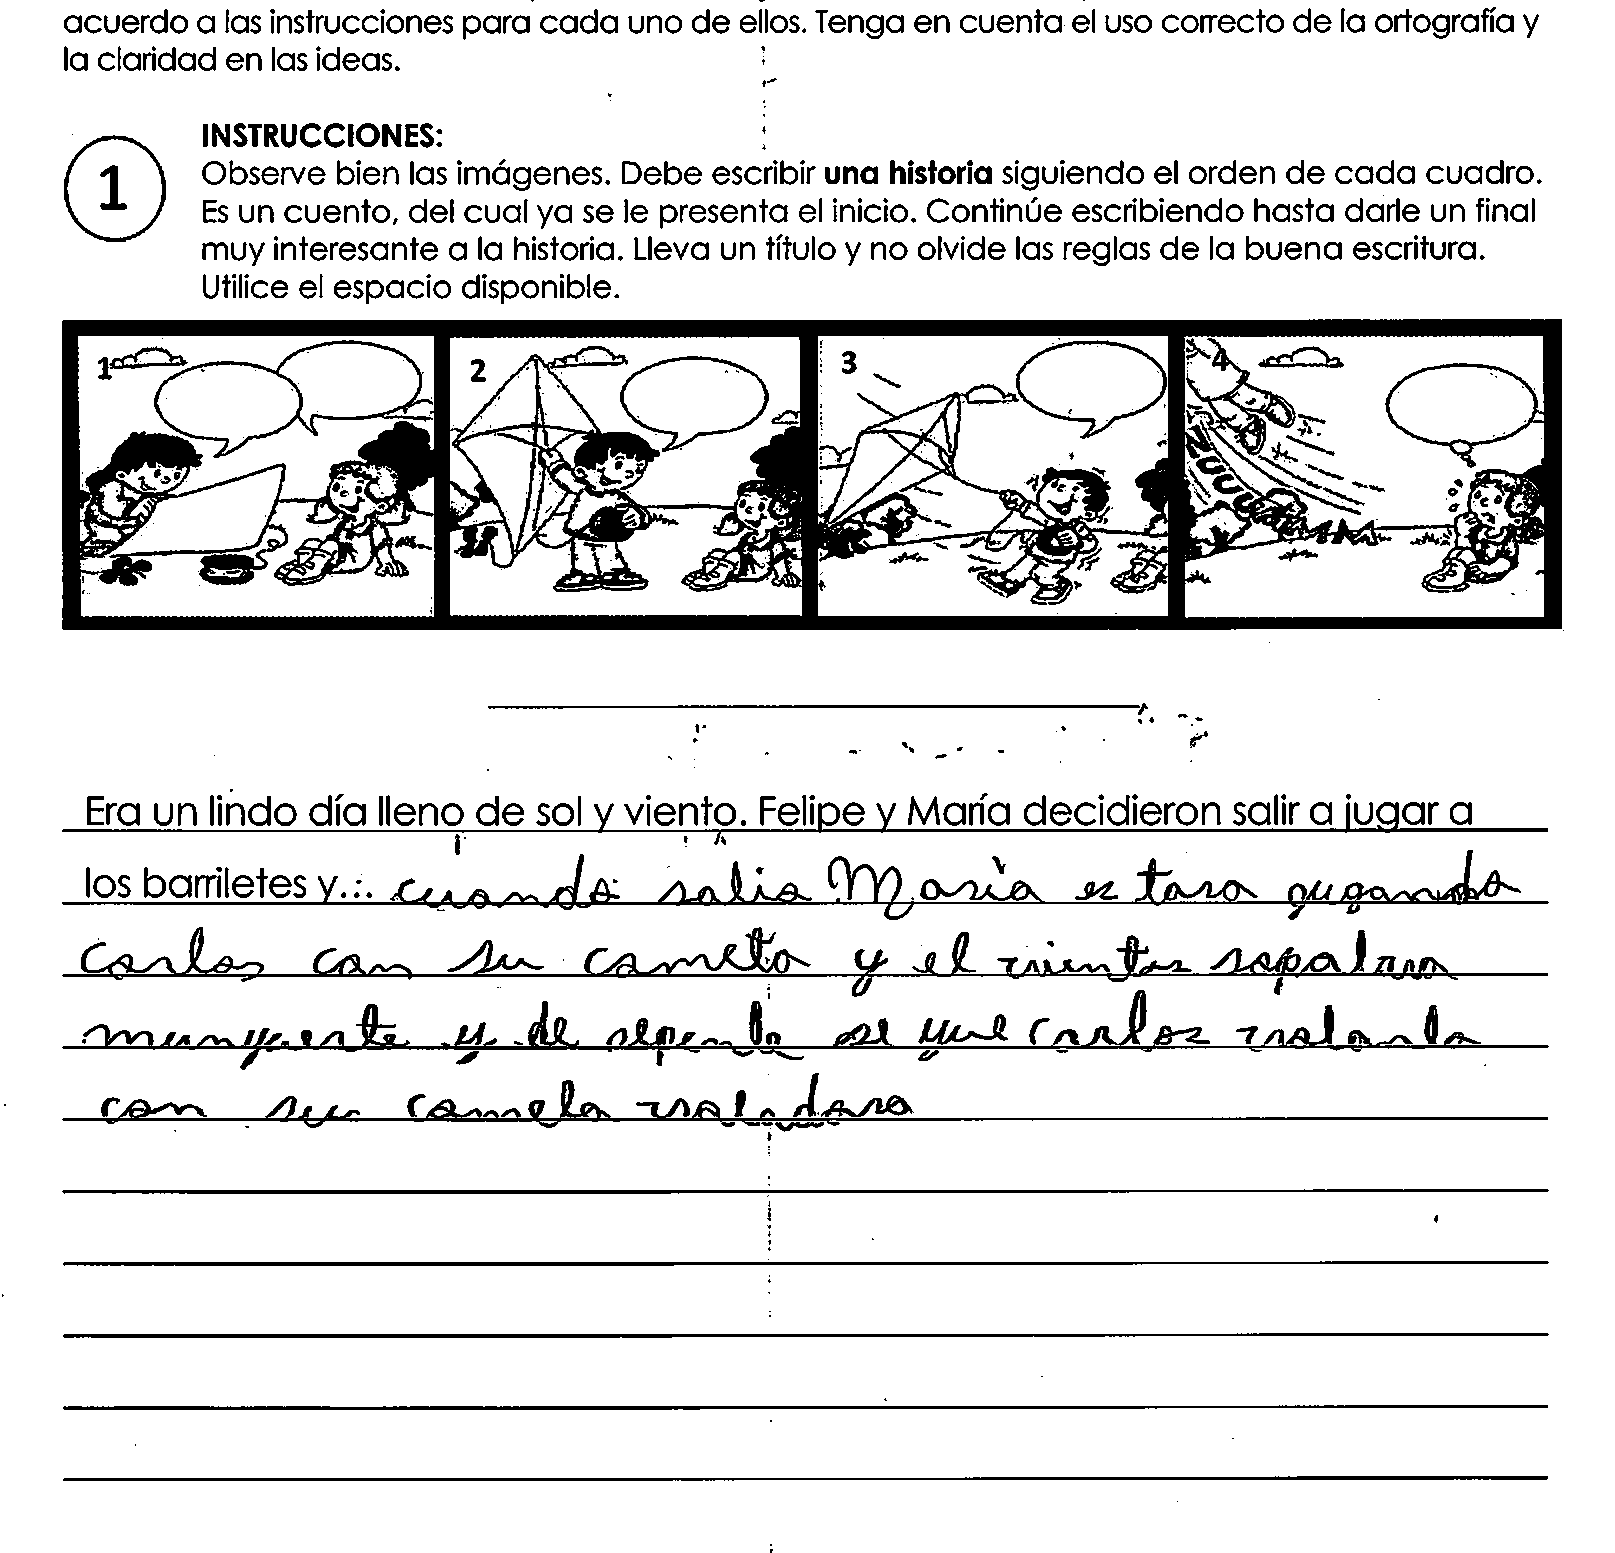 acuerdo a las instrucciones para cada uno de ellos. Tenga en cuenta el uso correcto de la ortografía y
la claridad en las ideas.
1
INSTRUCCIONES:
Observe bien las imágenes. Debe escribir una historia siguiendo el orden de cada cuadro.
Es un cuento, del cual ya se le presenta el inicio. Continúe escribiendo hasta darle un final
muy interesante a la historia. Lleva un título y no olvide las reglas de la buena escritura.
Utilice el espacio disponible.
1 2 3 4
Era un lindo día lleno de sol y viento. Felipe y María decidieron salir a jugar a
los barriletes y... cuando salio María es tava gugando
Carlos con su cometa y el viento sopalava
y de repente se Carlos
con su cometa voladora